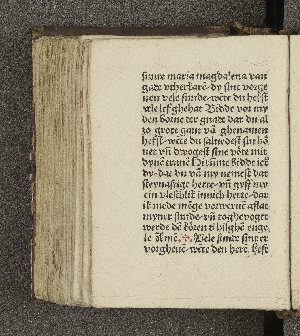 sunte maria magdalena van
gade vthertaren dy sint verge
uen vele sunde wete du hefst
vele lef ghehat Bidde vor my
den borne der gnade dar du al
so grote gaue vā ghenamen
hefst wete du salwedest sin hō
uet vn̄ dwogest sine vöte mit
dyne tranē Hirūme bidde ick
dy dat du vn̄ my nemest dat
steynaftige herte vn̄ gyff my
eyn vleschlik innich herte dar
ik mede möge vorweruē aflat
myner sunde vn̄ toghevoget
werde dē kören d hilghē enge
le Amē Vele sunte sint er
vorgheuē wēte den herē heft